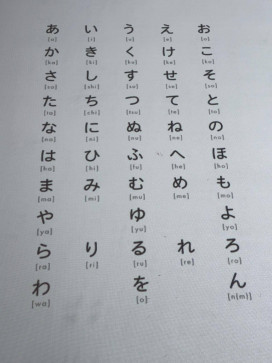 あ い う え お
[a] [i] [u] [e] [o]
か き く け こ
[ka] [ki] [ku] [ke] [ko]
さ し す せ そ
[sa] [shi] [su] [se] [so]
た ち つ て と
[ta] [chi] [tsu] [te] [to]
な に ぬ ね の
[na] [ni] [nu] [ne] [no]
は ひ ふ へ ほ
[ha] [hi] [fu] [he] [ho]
ま み む め も
[ma] [mi] [mu] [me] [mo]
や ゆ よ
[ya] [yu] [yo]
ら り る れ ろ
[ra] [ri] [ru] [re] [ro]
わ を ん
[wa] [o] [n(m)]